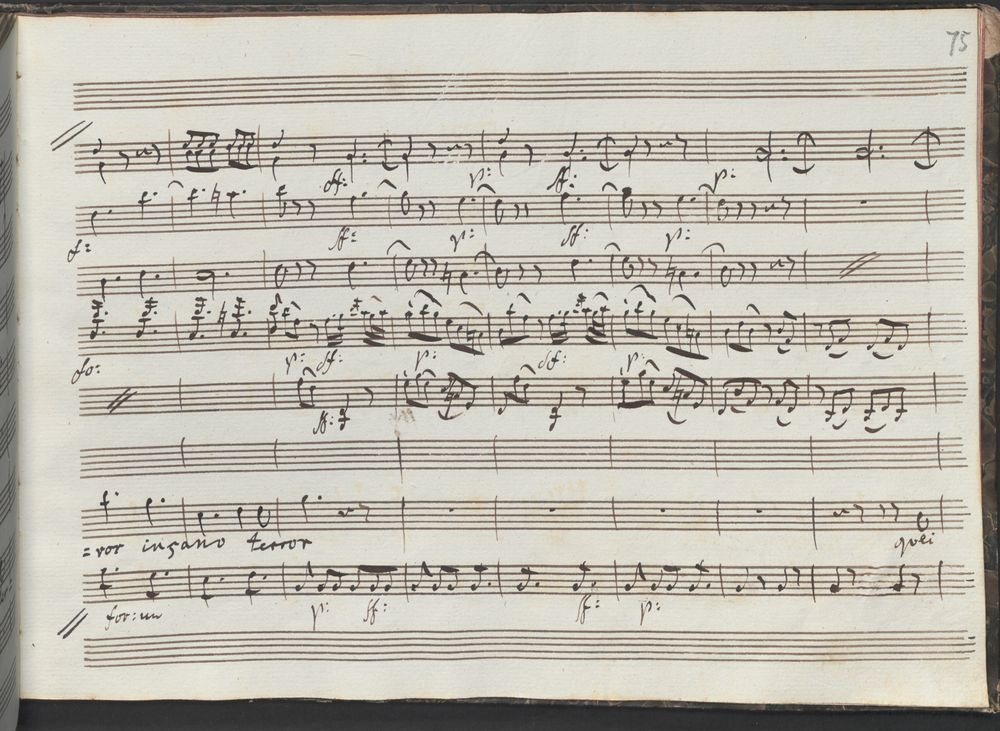 75
sf: p: sf: p:
f: sf: p: sf: p:
fo: p: sf: p: sf: p:
sf:
=ror insano terror quei
for: p: sf: sf: p: